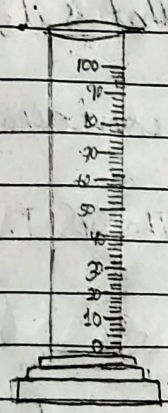 100
90
80
70
60
50
40
30
20
10
0